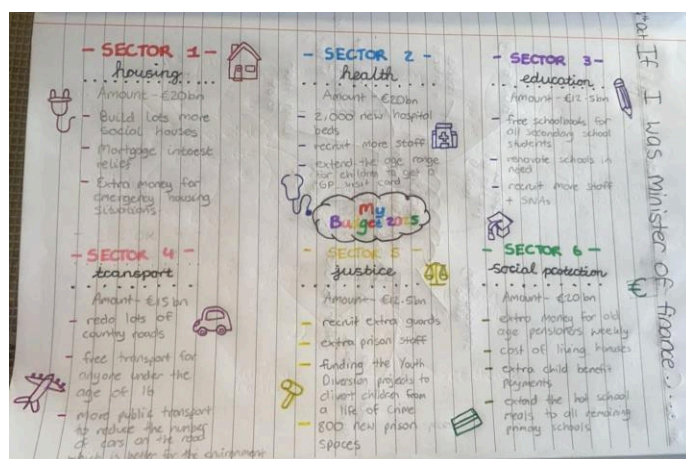 If I was minister of finance...
- SECTOR 1 -
housing
Amount - €20bn
- Build lots more
social houses
- Mortgage interest
relief
- Extra money for
emergency housing
situations
- SECTOR 2 -
health
Amount - €20bn
- 2,000 new hospital
beds
- recruit more staff
- extend the age range
for children to get a
GP visit card
- SECTOR 3 -
education
Amount - €12.5bn
- free schoolbooks for
all secondary school
students
- renovate schools in
need
- recruit more staff
+ SNAs
My
Budget 2025
- SECTOR 4 -
transport
Amount - €15bn
- redo lots of
country roads
- free transport for
anyone under the
age of 16
- more public transport
to reduce the number
of cars on the road
which is better for the environment
- SECTOR 5 -
justice
Amount - €12.5bn
- recruit extra guards
- extra prison staff
- funding the Youth
Diversion projects to
divert children from
a life of crime
- 800 new prison
spaces
- SECTOR 6 -
social protection
Amount - €20bn
- extra money for old
age pensioners weekly
- cost of living bonuses
- extra child benefit
payments
- extend the hot school
meals to all remaining
primary schools
€